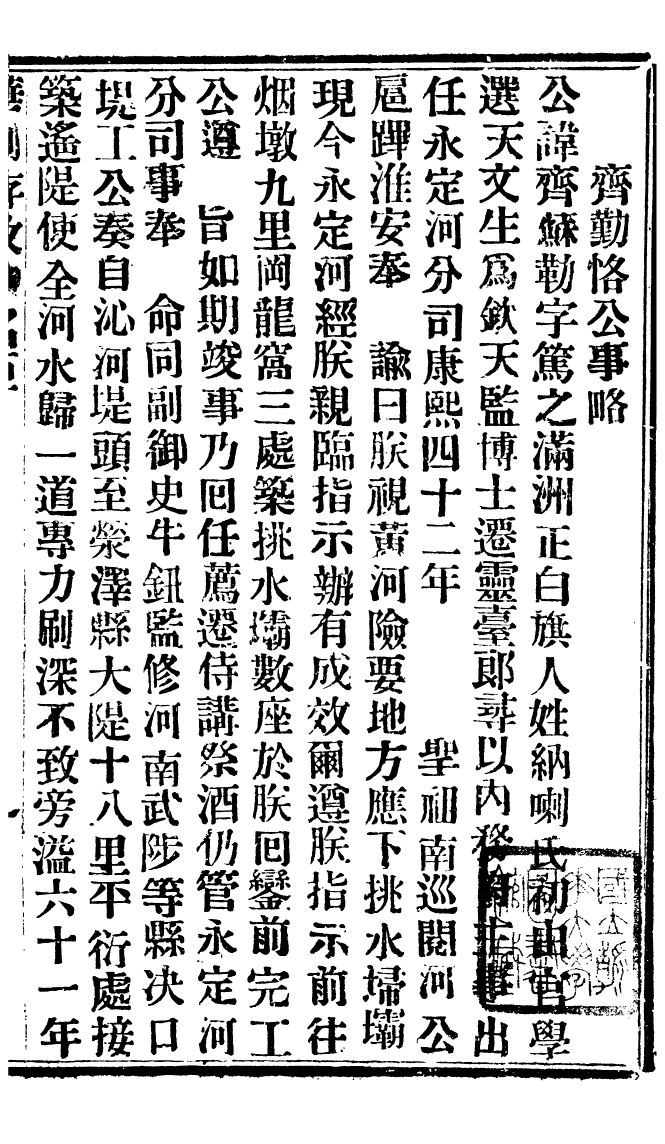 齊勤恪公事略
公諱齊蘇勒字篤之滿洲正白旗人姓納喇氏初由官學
選天文生爲欽天監博士遷靈臺郎尋以內務府主事出
任永定河分司康熙四十二年 聖祖南巡閱河公
扈蹕淮安奉 諭曰朕視黃河險要地方應下挑水埽壩
現今永定河經朕親臨指示辦有成效爾遵朕指示前往
烟墩九里岡龍窩三處築挑水壩數座於朕囘鑾前完工
公遵 旨如期竣事乃囘任薦遷侍講祭酒仍管永定河
分司事奉 命同副御史牛鈕監修河南武陟等縣决口
堤工公奏自沁河堤頭至滎澤縣大隄十八里平衍處接
築遙隄使全河水歸一道專力刷深不致旁溢六十一年